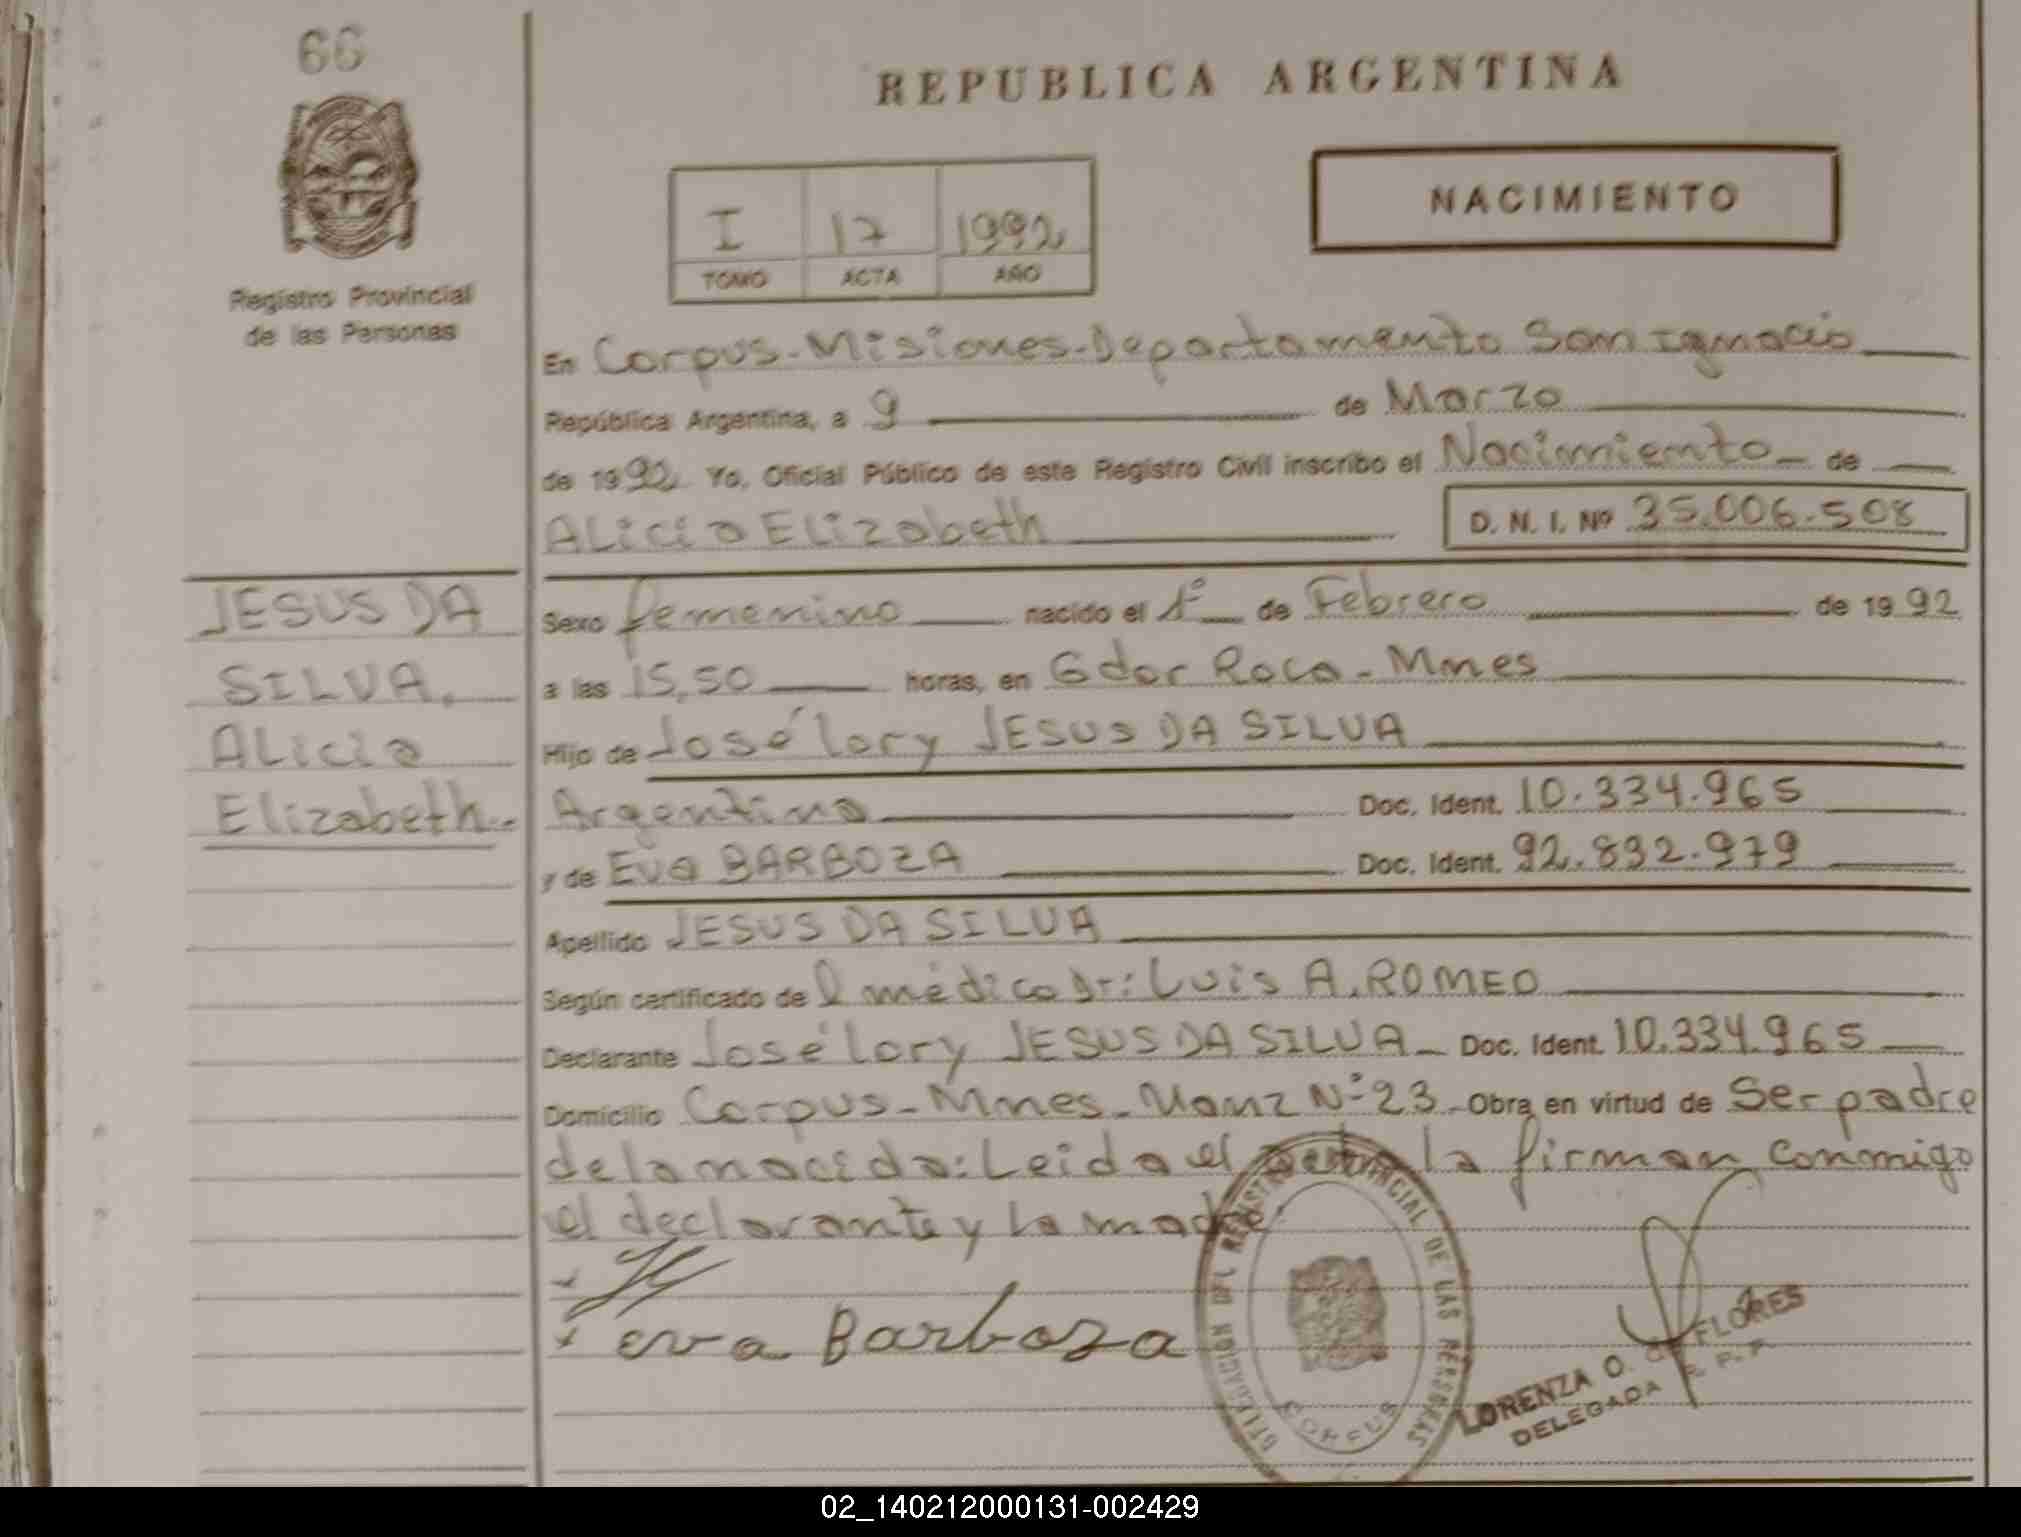 66
Registro Provincial
de las Personas
REPUBLICA ARGENTINA
NACIMIENTO
I 17 1992
TOMO ACTA AÑO
En Corpus-Misiones-Departamento San Ignacio
República Argentina, a 9 de Marzo
de 1992 Yo, Oficial Público de este Registro Civil inscribo el Nacimiento de
Alicia Elizabeth
D. N. I. Nº 35.006.508
JESUS DA
SILVA,
Alicia
Elizabeth.-
Sexo femenino nacido el 1° de Febrero de 1992
a las 15,50 horas, en Gdor Roca - Mnes
Hijo de José lory JESUS DA SILVA
Argentina Doc. Ident. 10.334.965
y de Eva BARBOZA Doc. Ident. 92.832.979
Apellido JESUS DA SILVA
Según certificado de l médico Dr: Luis A. ROMEO
Declarante José lory JESUS DA SILVA Doc. Ident. 10.334.965
Domicilio Corpus - Mnes - Manz N° 23 - Obra en virtud de Ser padre
de la nacida: Leida el acta la firman conmigo
el declarante y la madre.
eva Barboza
DELEGACION DEL REGISTRO PROVINCIAL DE LAS PERSONAS
CORPUS
LORENZA O. FLORES
DELEGADA
02_140212000131-002429